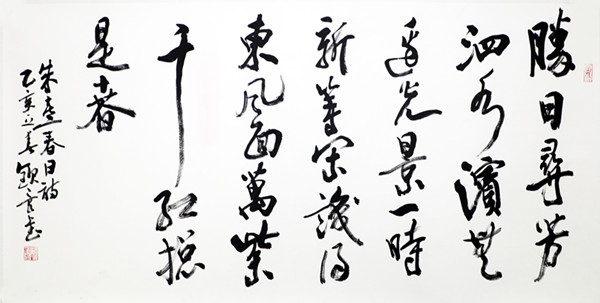 勝日尋芳
泗水濱無
邊光景一時
新等閑識得
東風面萬紫
千紅總
是春
朱熹春日詩
乙亥立春